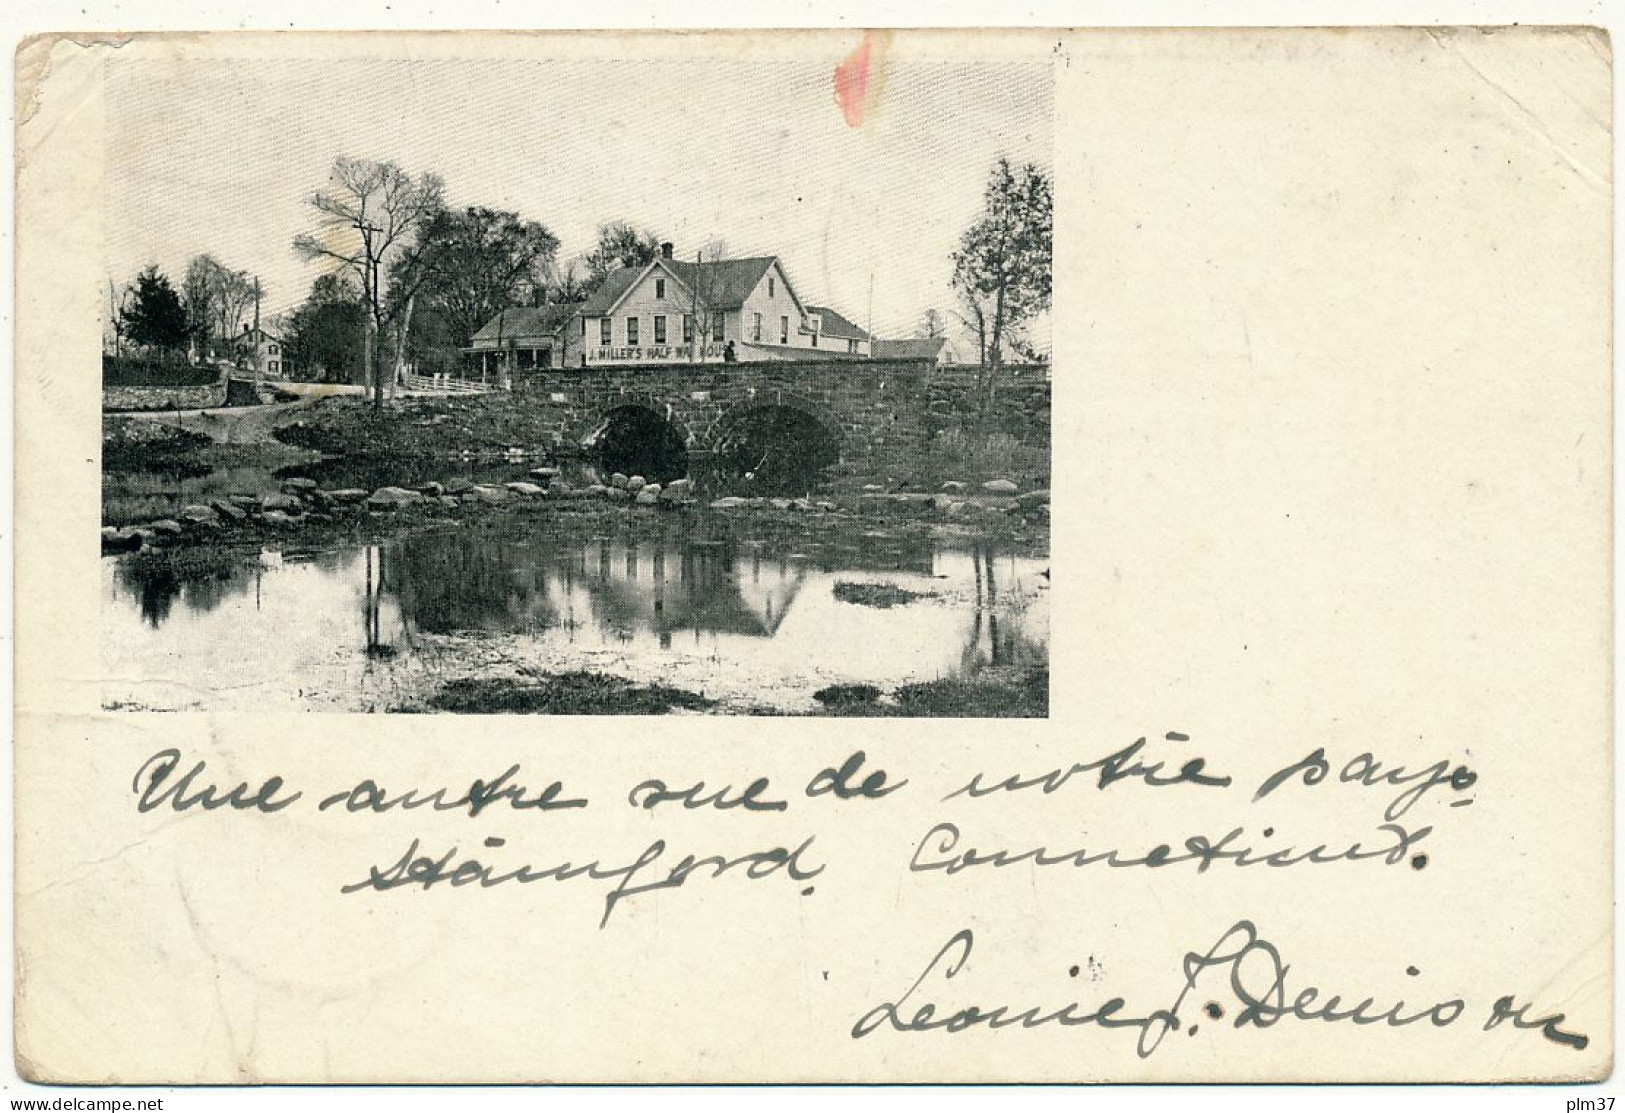 J. MILLER'S HALF WAY HOUS
Une autre vue de notre pays
Stamford. Connecticut.
Leonie J. Denison
www.delcampe.net
plm37